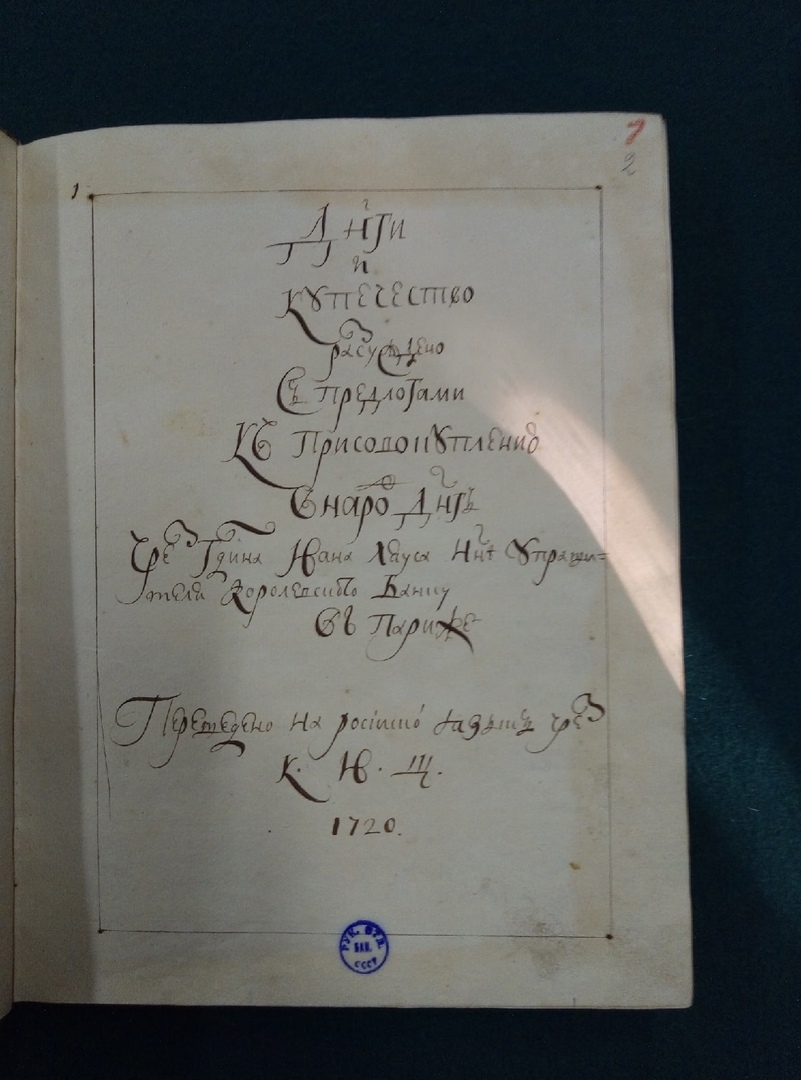 1
2
Днги
и
купечество
разсуждено
съ предлогами
къ присовокупленію
въ народ днгъ
чрез Гдина Ивана Ляуса ннѣ управи=
теля королевско банку
въ Парижѣ
Переведено на россіиско языкъ чрез
К. И. Щ.
1720.
РУК. ОТД.
БАН.
СССР